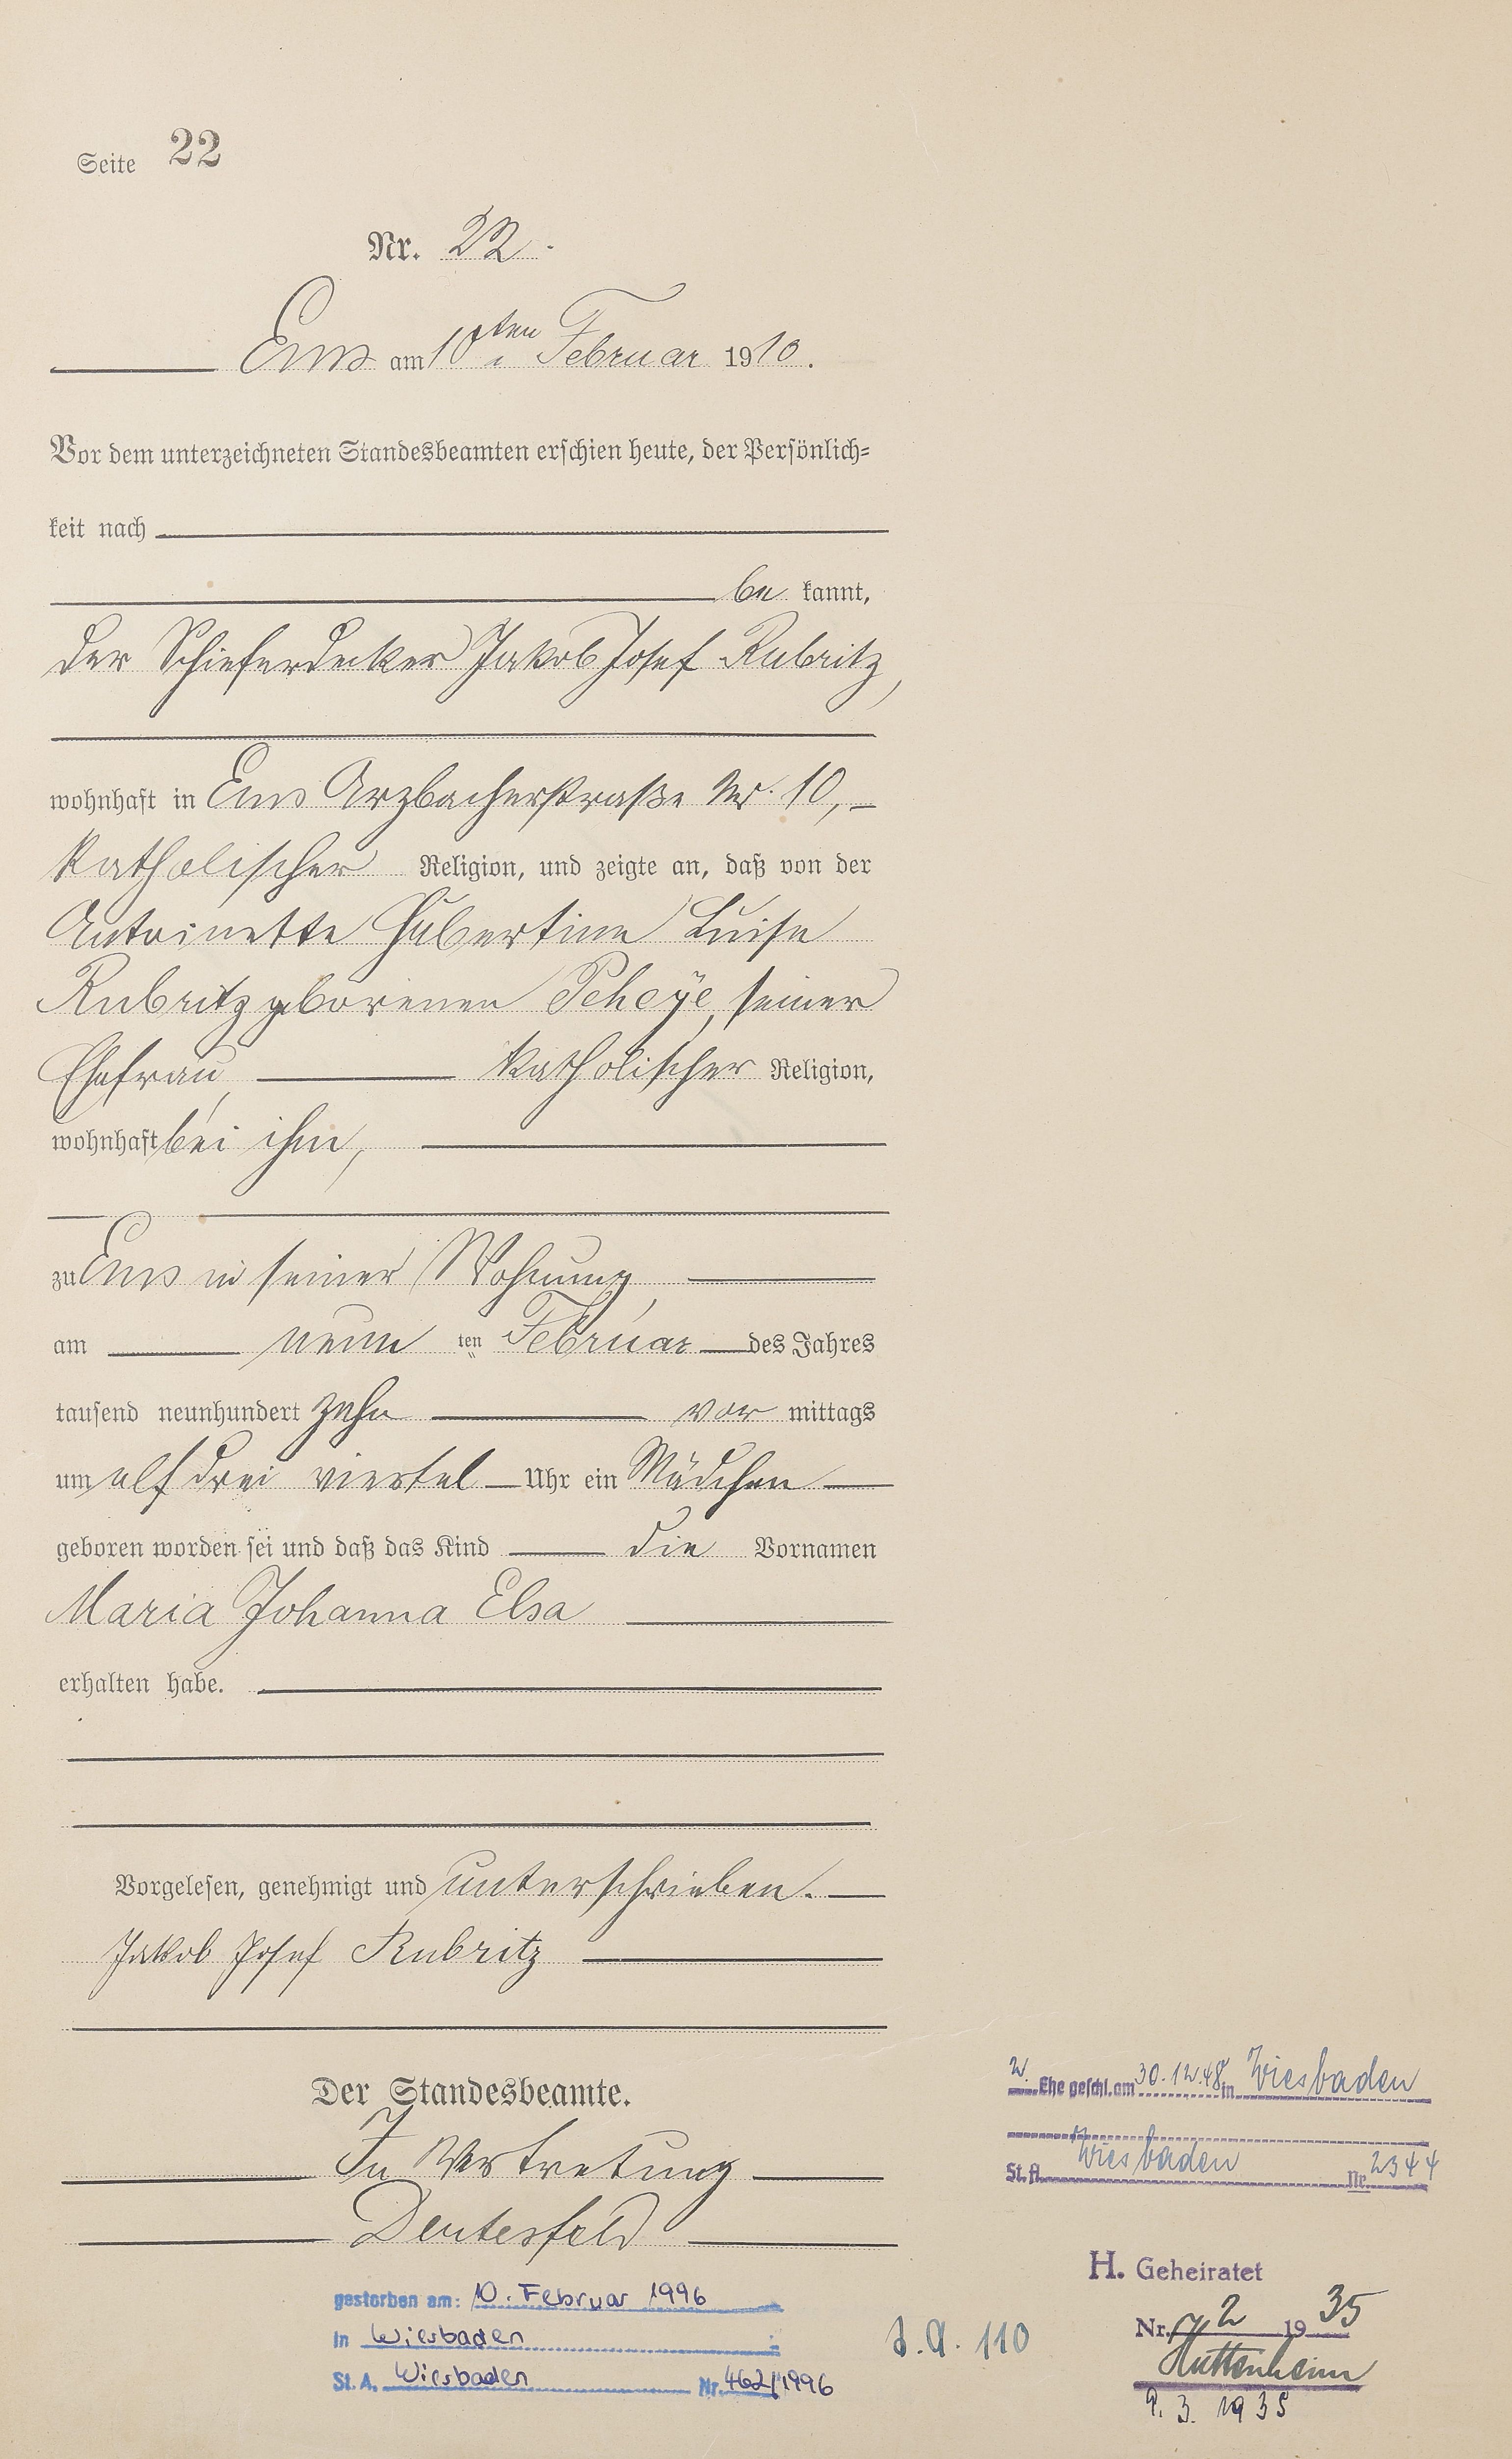 Seite 22
Nr. 22.
Ems am 10ten Februar 1910.
Vor dem unterzeichneten Standesbeamten erschien heute, der Persönlich-
keit nach
be kannt,
der Schieferdecker Jakob Josef Rubritz,
wohnhaft in Ems Arzbacherstraße Nr. 10,
katholischer Religion, und zeigte an, daß von der
Antoinette Hubertine Luise
Rubritz geborenen Peheÿe, seiner
Ehefrau, katholischer Religion,
wohnhaft bei ihm,
zu Ems in seiner Wohnung,
am neun ten Februar des Jahres
tausend neunhundert zehn vor mittags
um elf drei viertel Uhr ein Mädchen
geboren worden sei und daß das Kind die Vornamen
Maria Johanna Elsa
erhalten habe.
Vorgelesen, genehmigt und unterschrieben.
Jakob Josef Rubritz
Der Standesbeamte.
In Vertretung
Deutesfeld
2. Ehe geschl. am 30.12.48 in Wiesbaden
St. A. Wiesbaden Nr. 2344
gestorben am: 10. Februar 1996
in Wiesbaden
St. A. Wiesbaden Nr. 462/1996
110
H. Geheiratet
Nr. 2 1935
Huttenheim
9. 3. 1935